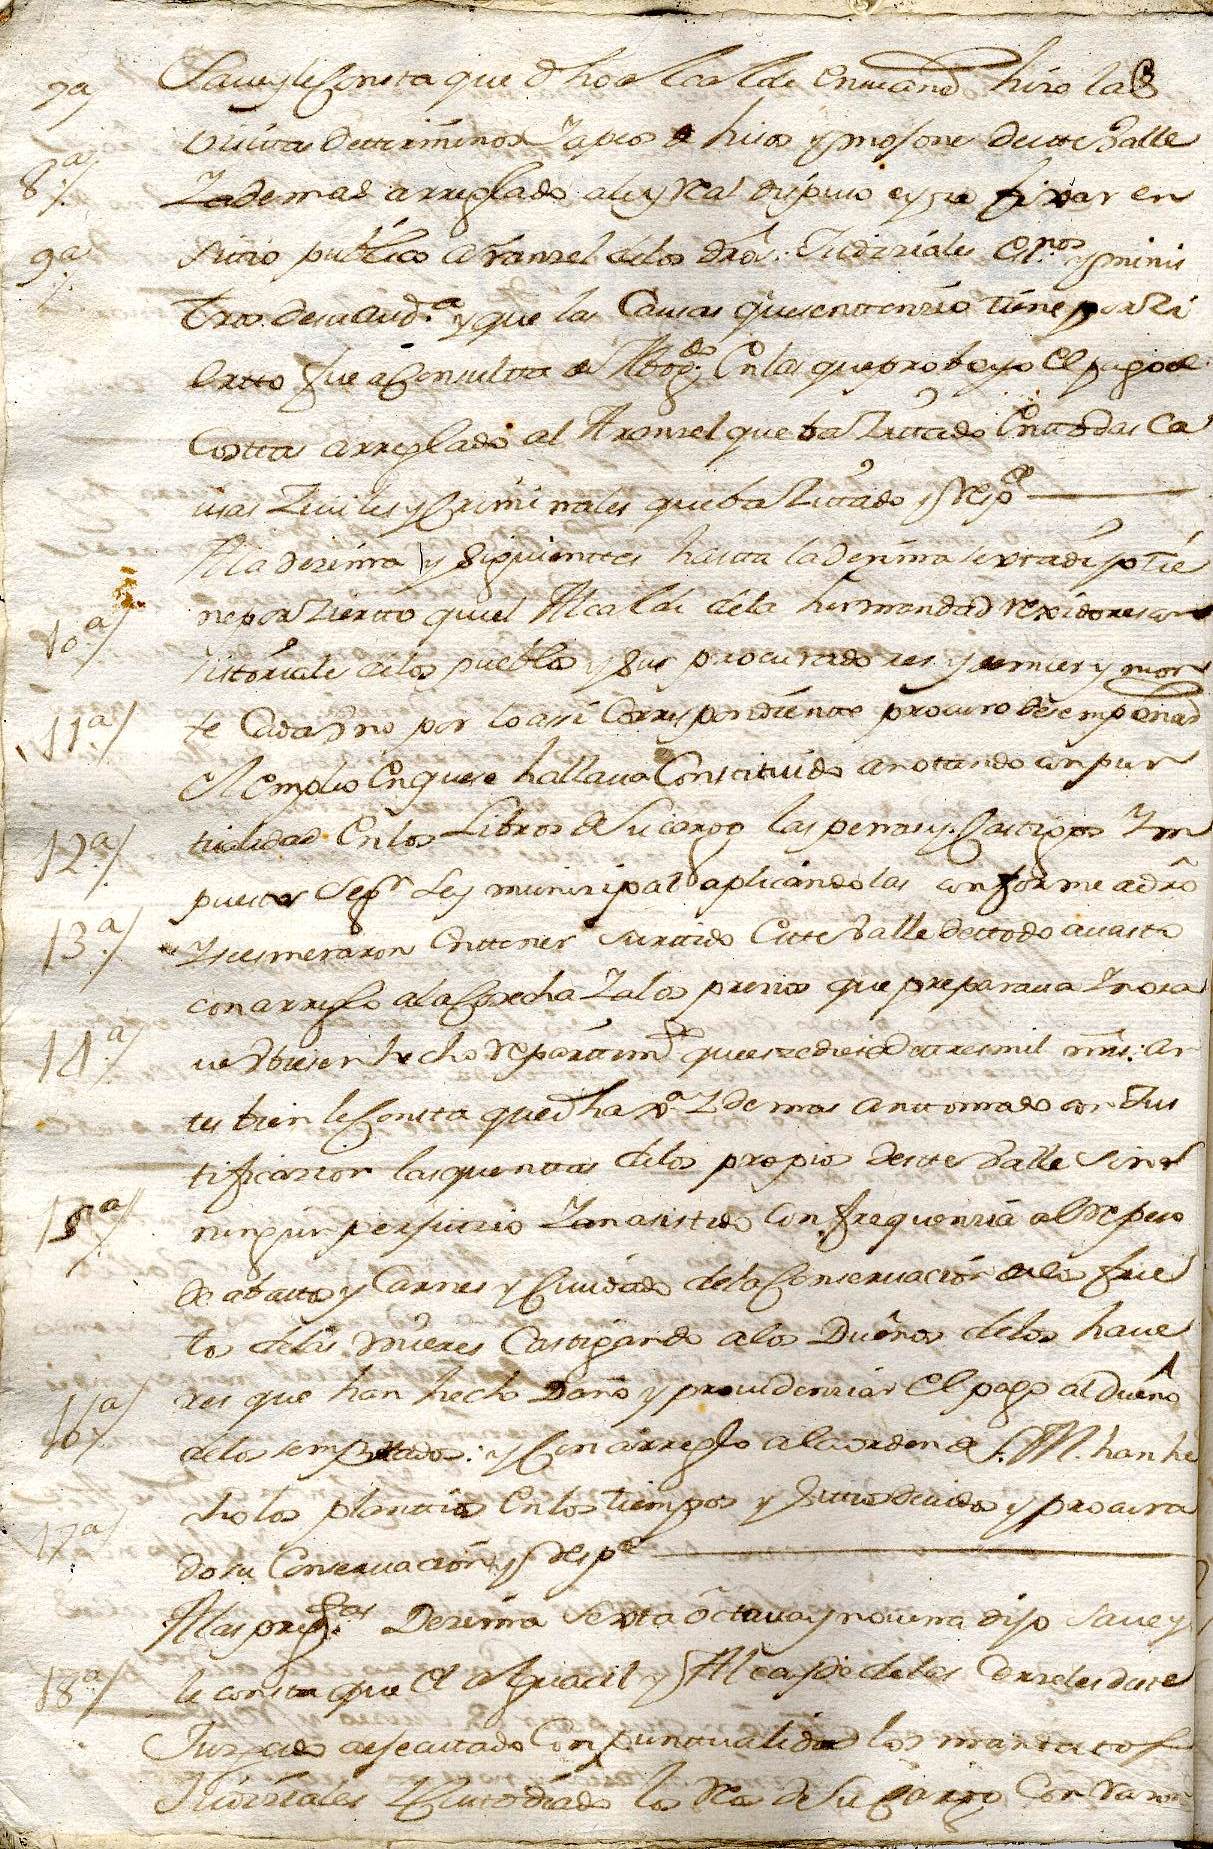 7ª Save y le Consta que dho Alcalde Enunciando hizo la
visita de terminos y apeo de hitos y mojones de este Valle
8ª y demas arreglado a ley Real dispuso e yzo fixar en
9ª sitio publico el Aranzel de los dros. Judiziales Esnos. y minis
tros de su aud.ª y que las Causas que sentenzio tiene por Zi
ertto fue a Consultta de Abogdo. En las que probeyo El pago de
Costtas arreglado al Aranzel que ba Zittado En todas Ca
usas Ziviles y Criminales que ba Zittado y Respde
A la dezima y siguienttes hasta la dezima sexta dijo tie
10ª ne por Ziertto que el Alcalde de la hermandad rexidores
de los pueblos y sus procuradores
11ª te Cada Uno por lo asi Correspondiente procuro desempeñar
el Empleo En que se hallava Constituido anotando con pun
12ª tualidad En los Libros de su cargo las penas y Castigos Ym
puestas Segn Ley municipal aplicandolas conforme a dro
13ª y se esmeraron En ttener surttido Este Valle de ttodo avasto
con arreglo a la Cosecha y a los prezios que preparava
14ª hecho repartimto que eszediese de ttres mil mrs: an
tes bien le Consta que dha y demas an ttomado con Jus
tificazion las quenttas de los propios deste Valle sin
15ª ningun perjuizio y an asistido Con frequenzia al Repeso
de abastto y Carnes y Cuidado de la Conservacion de los fru
tos de las mieses Castigando a los Dueños de los have
res que han hecho Daño y providenziar El pago al dueño
16ª de los y Con arreglo a la orden de S. M. han he
cho los planttios En los tiempos y sittios devidos y procura
17ª do su Conservacion y Respde
A las pregtas Dezima Septa octava y novena dijo save y
18ª le consta que El Alguacil y Alcayde de las Carzeles deste
Juzgado a ejecutado Con punttualidad los mandattos
Judiziales y Custodiado los Reos de Su Cargo Con